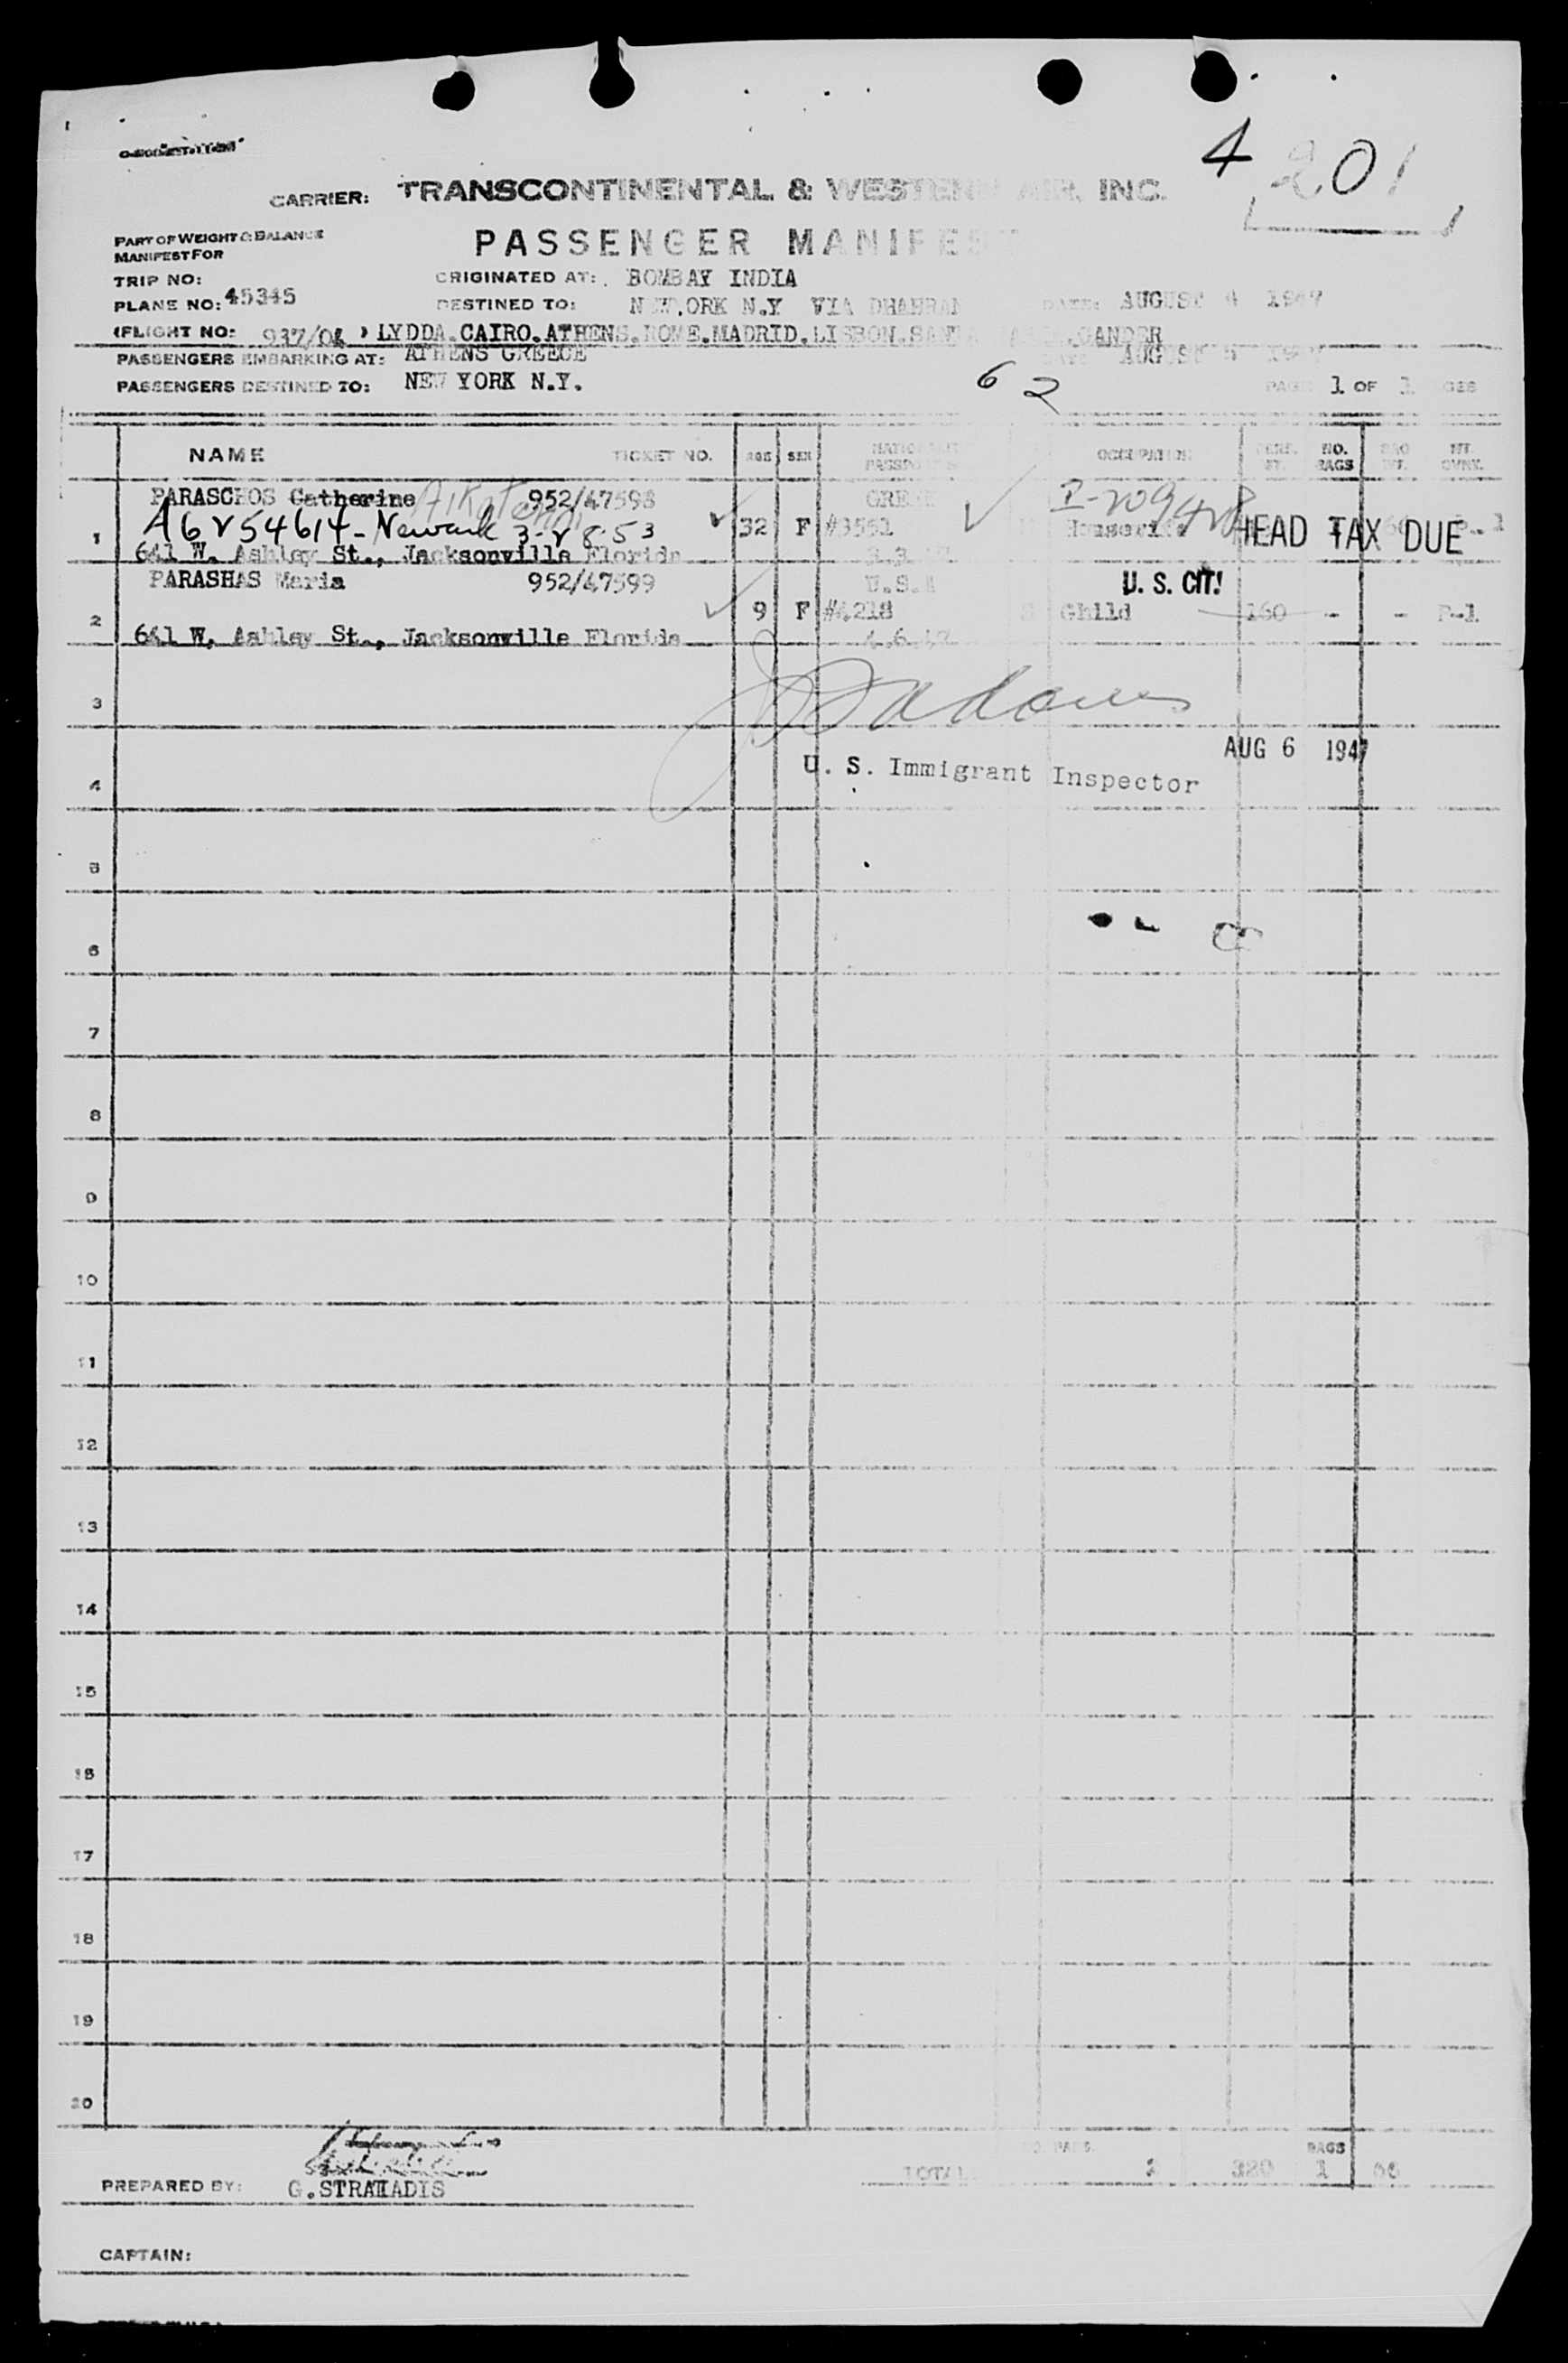 4 201
CARRIER: TRANSCONTINENTAL & WESTERN AIR, INC.
PART OF WEIGHT & BALANCE
MANIFEST FOR
PASSENGER MANIFEST
TRIP NO:
ORIGINATED AT: BOMBAY INDIA
PLANE NO: 45345
DESTINED TO: NEW YORK N.Y VIA DHAHRAN DATE: AUGUST 4 1947
(FLIGHT NO: 937/04 ) LYDDA.CAIRO.ATHENS.ROME.MADRID.LISBON.SANTA .GANDER
PASSENGERS EMBARKING AT: ATHENS GREECE AUGUST 1947
PASSENGERS DESTINED TO: NEW YORK N.Y.
62
PAGE 1 OF 1 PAGES
NAME TICKET NO. AGE SEX OCCUPATION NO. BAGS
PARASCHOS Catherine 952/47598 GREEK
1 A6254614 - Newark 3-28-53 32 F #3551 Housewife HEAD TAX DUE
641 W. Ashley St., Jacksonville Florida
PARASHAS Maria 952/47599 U.S.A U. S. CIT!
2 9 F #4218 Child 160 - - P-1
641 W. Ashley St., Jacksonville Florida
3
AUG 6 1947
U. S. Immigrant Inspector
4
5
6
7
8
9
10
11
12
13
14
15
16
17
18
19
20
BAGS
TOTAL 2 320 1 66
PREPARED BY: G.STRATIADIS
CAPTAIN: